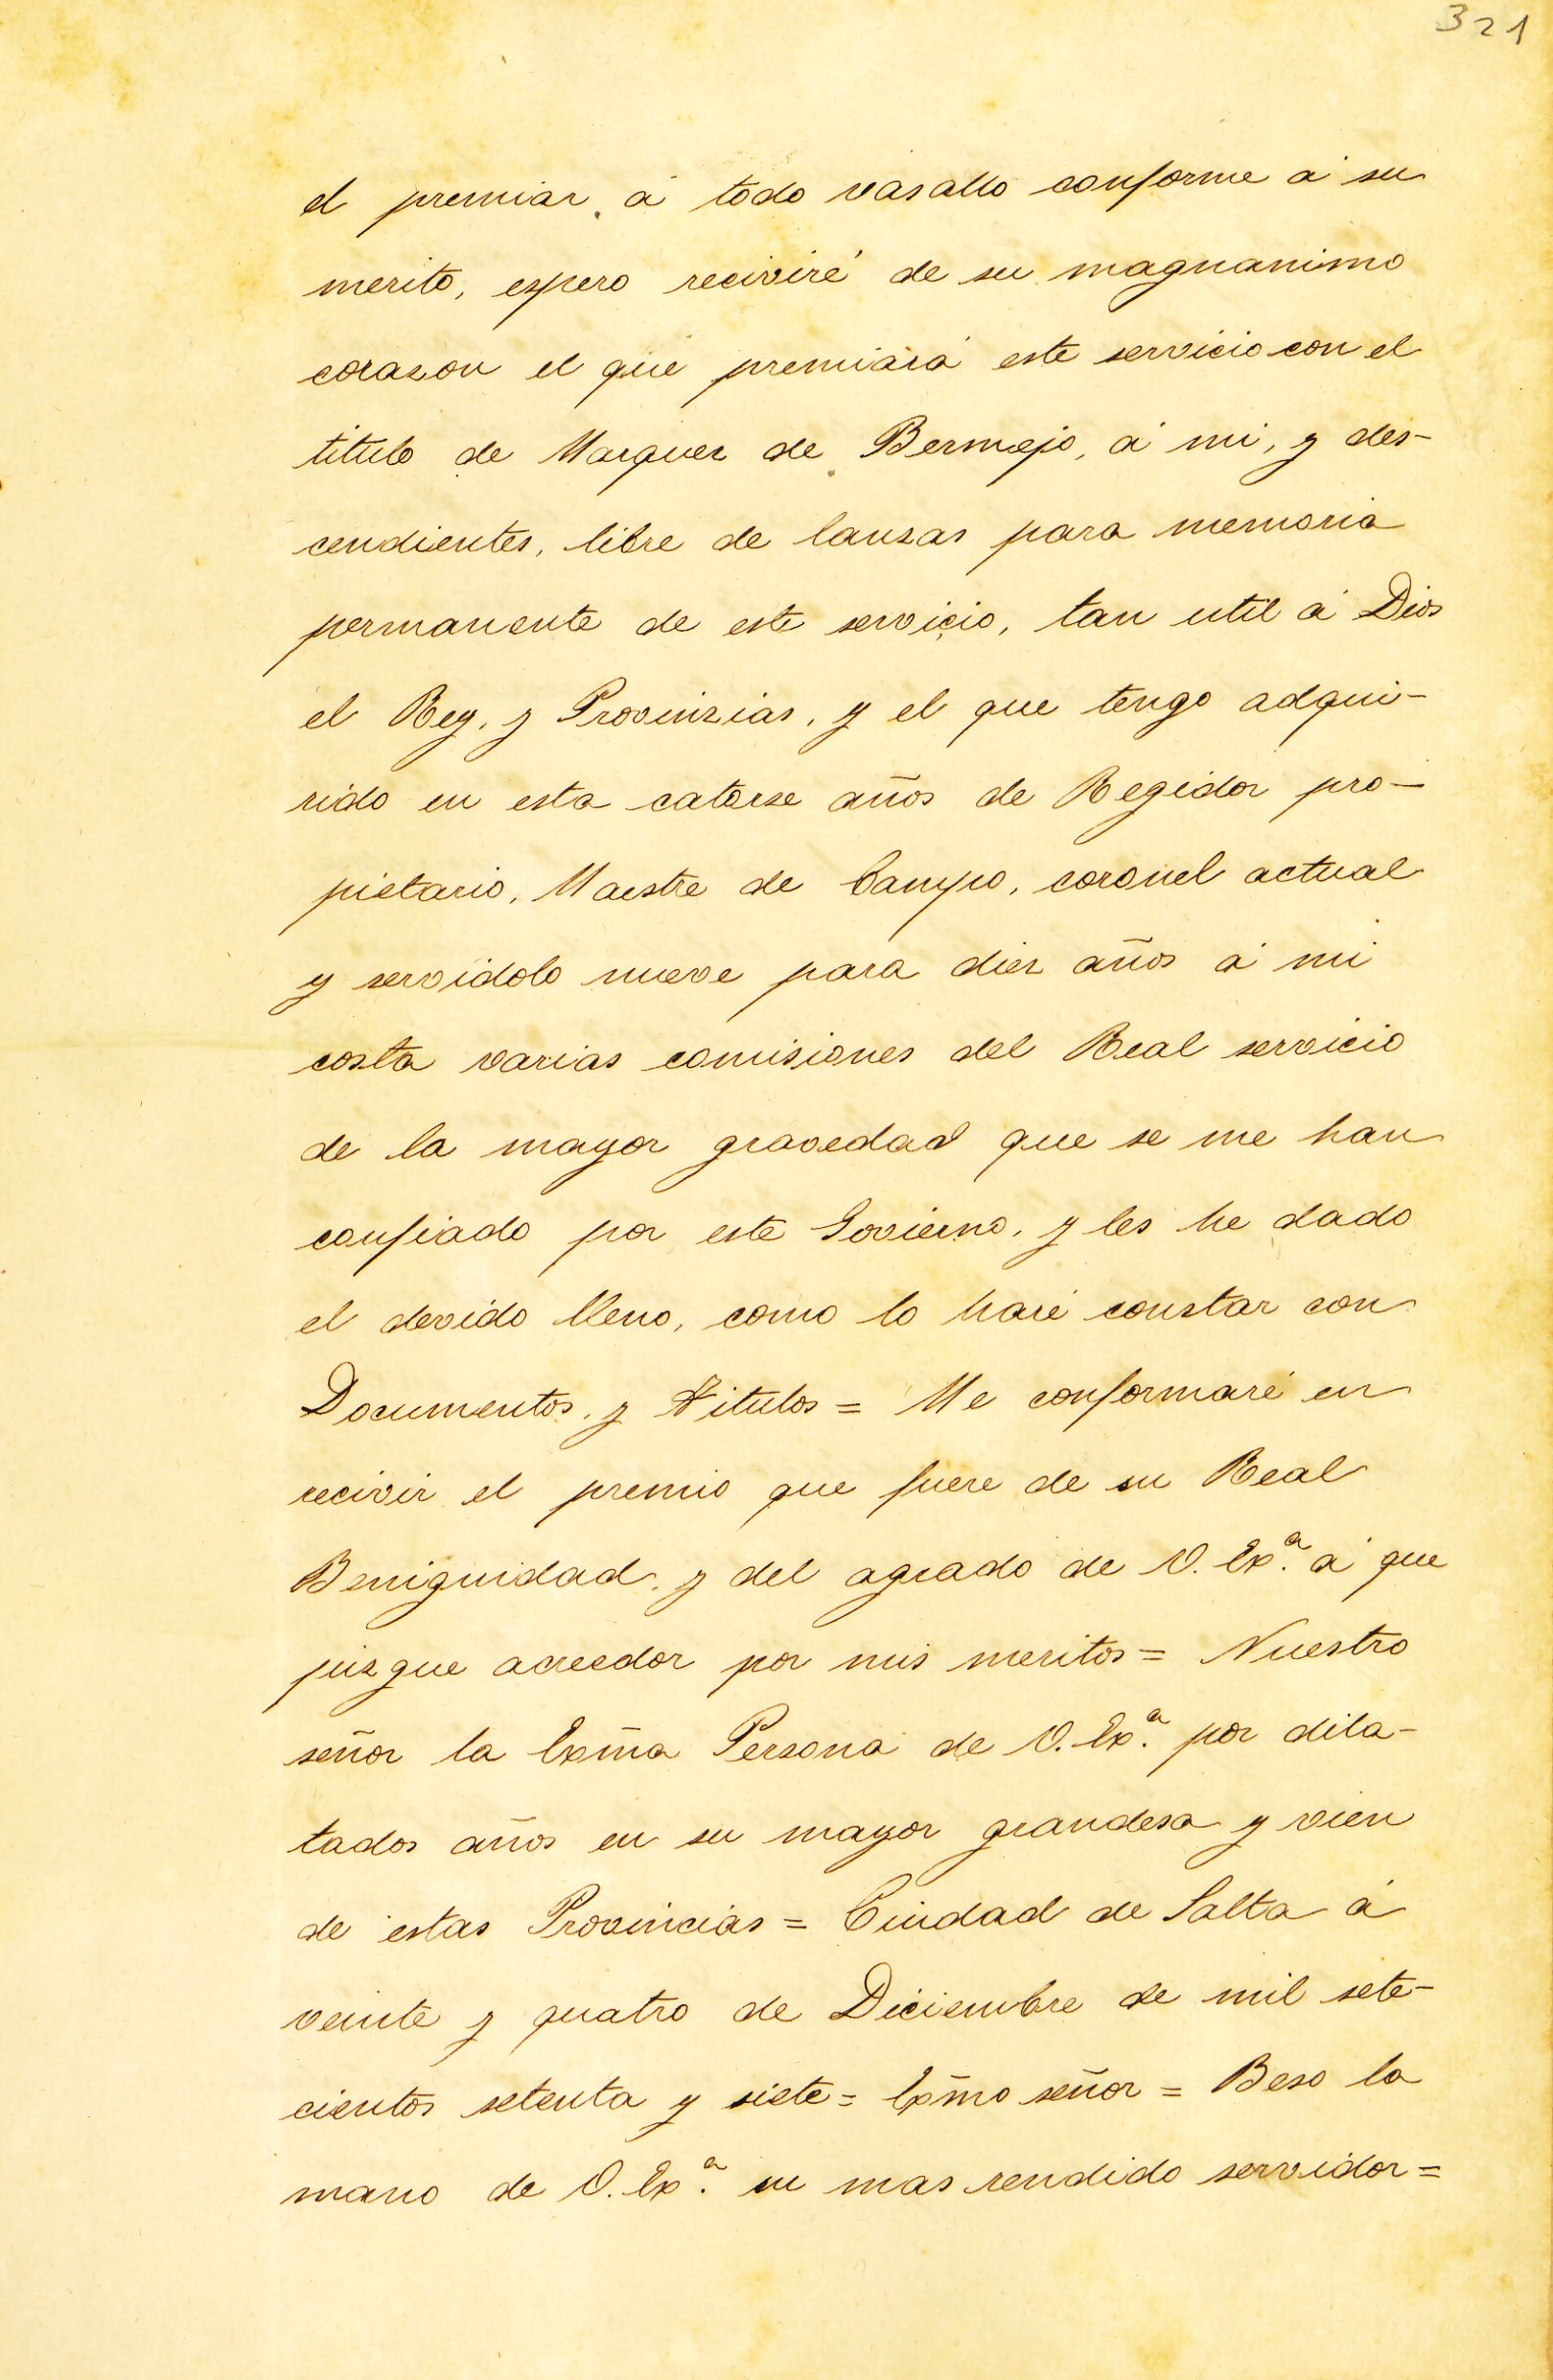 321
el premiar á todo vasallo conforme á su
merito, espero reciviré de su magnanimo
corazon el que premiará este servicio con el
titulo de Marquez de Bermejo, á mi, y des-
cendientes, libre de lanzas para memoria
permanente de este servicio, tan util á Dios
el Rey, y Provinzias, y el que tengo adqui-
rido en esta catorse años de Regidor pro-
pietario, Maestre de Campo, coronel actual
y servidolo nueve para diez años á mi
costa varias comisiones del Real servicio
de la mayor gravedad que se me han
confiado por este Govierno, y les he dado
el devido lleno, como lo haré constar con
Documentos, y Titulos = Me conformaré en
recivir el premio que fuere de su Real
Beniguidad, y del agrado de V. Exª. á que
juzgue acreedor por mis meritos = Nuestro
señor la Exm̃a Persona de V. Exª. por dila-
tados años en su mayor grandesa y vien
de estas Provincias = Ciudad de Salta á
veinte y quatro de Diciembre de mil sete-
cientos setenta y siete = Exm̃o señor = Beso la
mano de V. Exª. su mas rendido servidor =